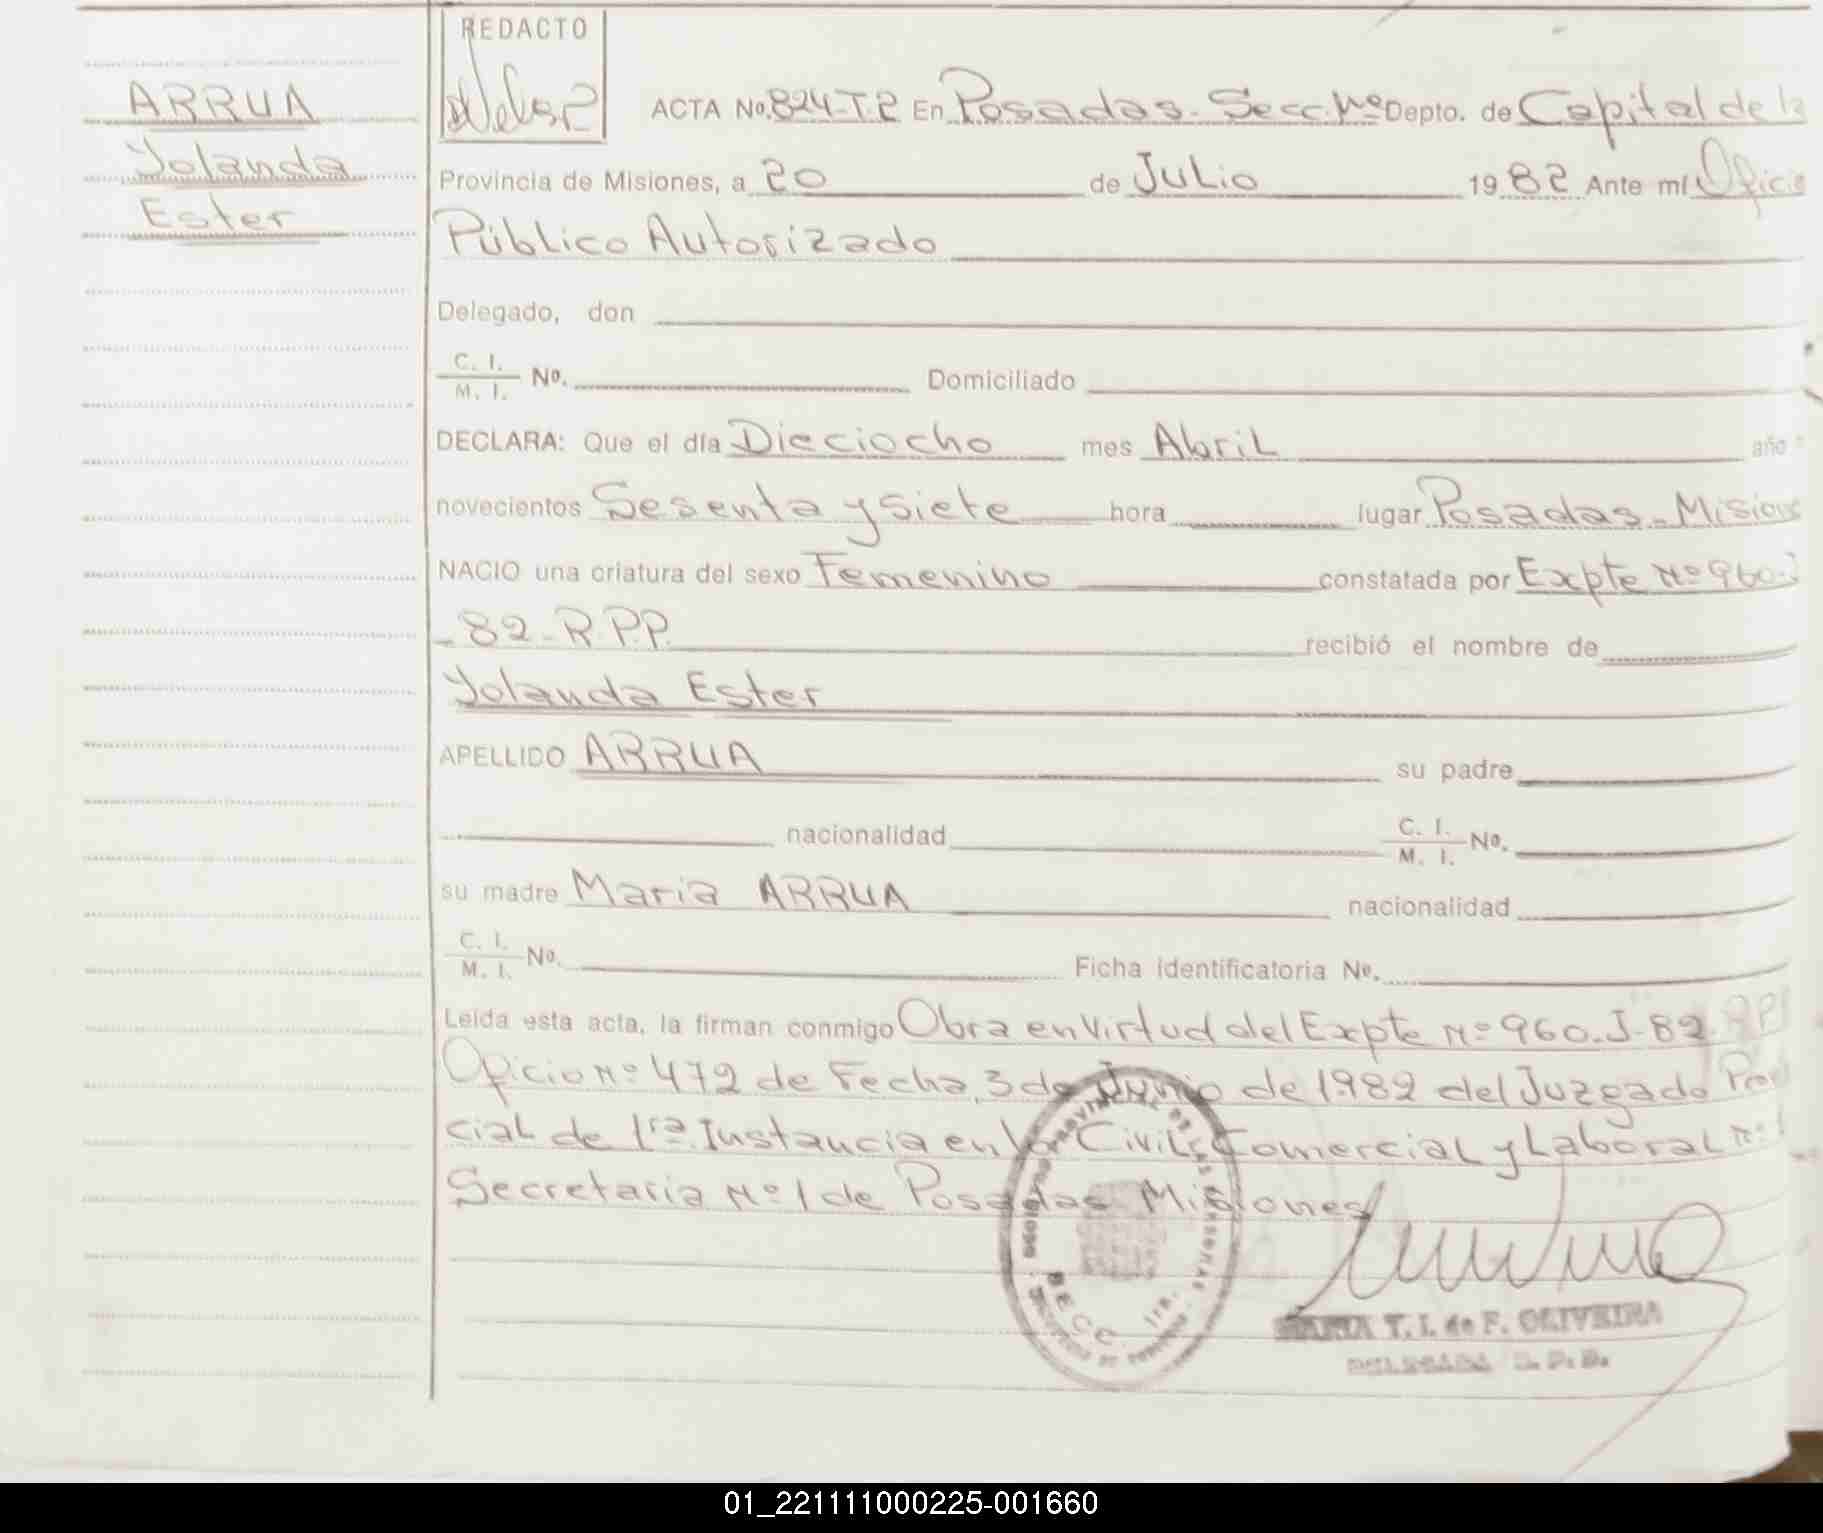 REDACTO
ARRUA
Yolanda
Ester
ACTA No. 824-T.2 En Posadas. Secc. Depto. de Capital de la
Provincia de Misiones, a 20 de Julio 1982 Ante mí Oficial
Público Autorizado
Delegado, don
C. I. / M. I. No. Domiciliado
DECLARA: Que el día Dieciocho mes Abril año
novecientos Sesenta y Siete hora lugar Posadas - Misiones
NACIO una criatura del sexo Femenino constatada por Expte Nº 960-J
-82-R.P.P. recibió el nombre de
Yolanda Ester
APELLIDO ARRUA su padre
nacionalidad C. I. / M. I. No.
su madre Maria ARRUA nacionalidad
C. I. / M. I. No. Ficha Identificatoria No.
Leída esta acta, la firman conmigo Obra en virtud del Expte Nº 960-J-82
Oficio Nº 472 de Fecha, 3 de Junio de 1982 del Juzgado
cial de 1ra. Instancia en lo Civil, Comercial y Laboral Nº 1
Secretaria Nº 1 de Posadas Misiones
SECC. 1ra.
MARIA T. I. de F. OLIVEIRA
DELEGADA R. P. P.
01_221111000225-001660